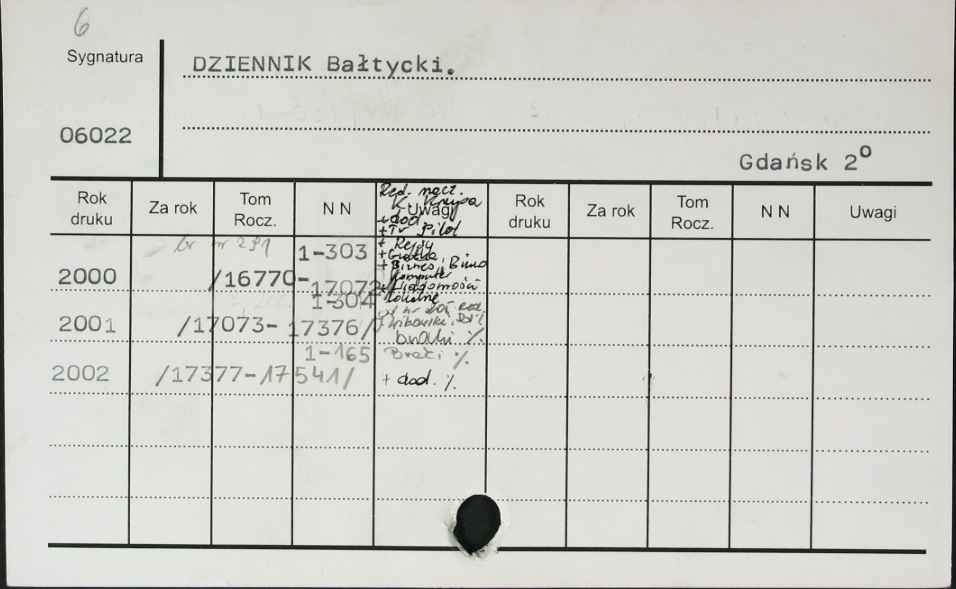 6
Sygnatura
DZIENNIK Bałtycki.
06022
Gdańsk 2°
Rok druku
Za rok
Tom Rocz.
N N
Uwagi
Rok druku
Za rok
Tom Rocz.
N N
Uwagi
Red. nacz.
K. Krupa
+ dod
+ Tv Pilot
+ Rejsy
+ Gratka
+ Biznes, Biuro
Komputer
+ Wiadomości
lokalne
br nr 291
1-303
2000 /16770-17072/
1-304
2001 /17073-17376/
braki %
1-165
Braki %
2002 /17377-17541/
+ dod. %